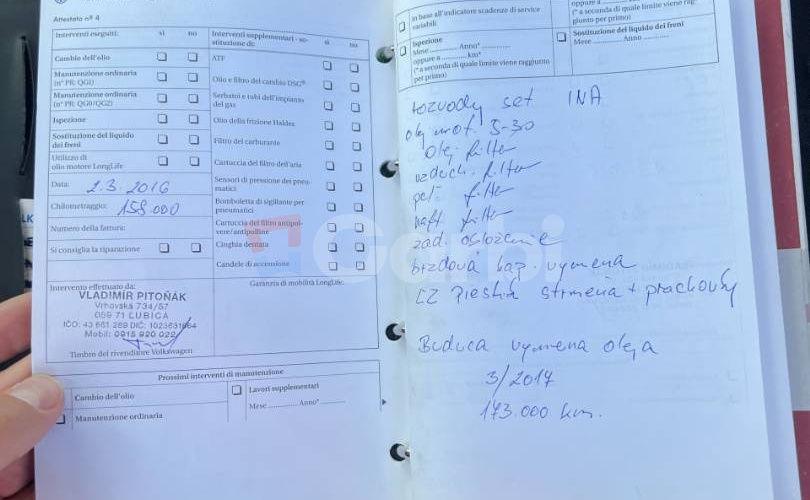 Attestato nº 4
Interventi eseguiti: sì no
Cambio dell'olio
Manutenzione ordinaria
(nº PR: QG1)
Manutenzione ordinaria
(nº PR: QG0/QG2)
Ispezione
Sostituzione del liquido
dei freni
Utilizzo di
olio motore LongLife
Data: 2.3.2016
Chilometraggio: 158.000
Numero della fattura:
Si consiglia la riparazione
Intervento effettuato da:
VLADIMÍR PITOŇÁK
Vrhovská 734/57
059 71 ĽUBICA
IČO: 43 661 289 DIČ:
Mobil: 0915 920 022
Timbro del rivenditore Volkswagen
Interventi supplementari - so-
stituzione di: sì no
ATF
Olio e filtro del cambio DSG®
Serbatoi e tubi dell'impianto
del gas
Olio della frizione Haldex
Filtro del carburante
Cartuccia del filtro dell'aria
Sensori di pressione dei pneu-
matici
Bomboletta di sigillante per
pneumatici
Cartuccia del filtro antipol-
vere/antipolline
Cinghia dentata
Candele di accensione
Garanzia di mobilità LongLife:
Prossimi interventi di manutenzione
Cambio dell'olio
Manutenzione ordinaria
Lavori supplementari
Mese ............ Anno* ............
in base all'indicatore scadenze di service
variabili
Ispezione
Mese ............ Anno* ............
oppure a ............ km*
(* a seconda di quale limite viene raggiunto
per primo)
oppure a
(* a seconda di quale limite viene rag-
giunto per primo)
Sostituzione del liquido dei freni
Mese ............ Anno ............
rozvody set INA
olej mot. 5-30
Olej filter
vzduch. filter
pel. filter
naft. filter
zad. osloženie
brzdová kap. vymena
Buduca vymena oleja
3/2017
173.000 km.